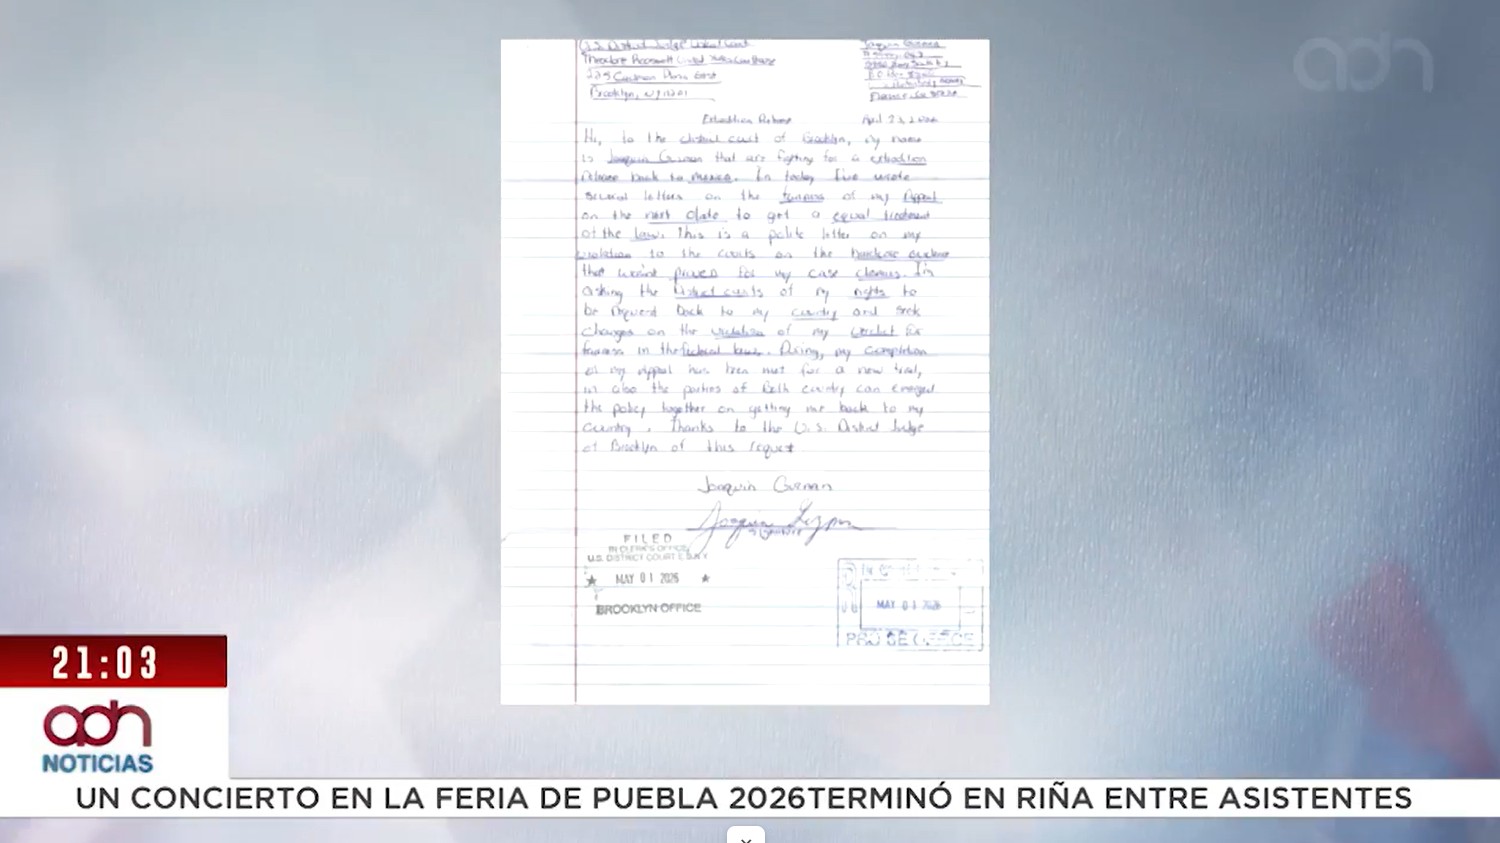 U.S. District Judge United Court
Theodore Roosevelt United States Courthouse
225 Cadman Plaza East
Brooklyn, NY 11201
Joaquin Guzman
Florence, Co
adn
Extradition Release
April 23, 2026
Hi, to the district court of Brooklyn, My name
is Joaquin Guzman that are fighting for a extradition
release back to mexico. In today I've wrote
several letters on the fairness of my Appeal
on the next date to get a equal treatment
of the law. This is a polite letter on my
violation to the courts on the evidence
that wasn't proven for my case closure. I'm
asking the District courts of my rights to
be back to my country and seek
changes on the violation of my verdict for
fairness in the federal laws. my completion
of my Appeal has been met for a new trial,
in also the parties of Both country can
the policy together on getting me back to my
country. Thanks to the U.S. District Judge
of Brooklyn of this request
Joaquin Guzman
Signature
FILED
IN CLERK'S OFFICE
U.S. DISTRICT COURT E.D.N.Y.
★ MAY 01 2026 ★
BROOKLYN OFFICE
MAY 01 2026
PRO SE OFFICE
21:03
adn
NOTICIAS
UN CONCIERTO EN LA FERIA DE PUEBLA 2026TERMINÓ EN RIÑA ENTRE ASISTENTES